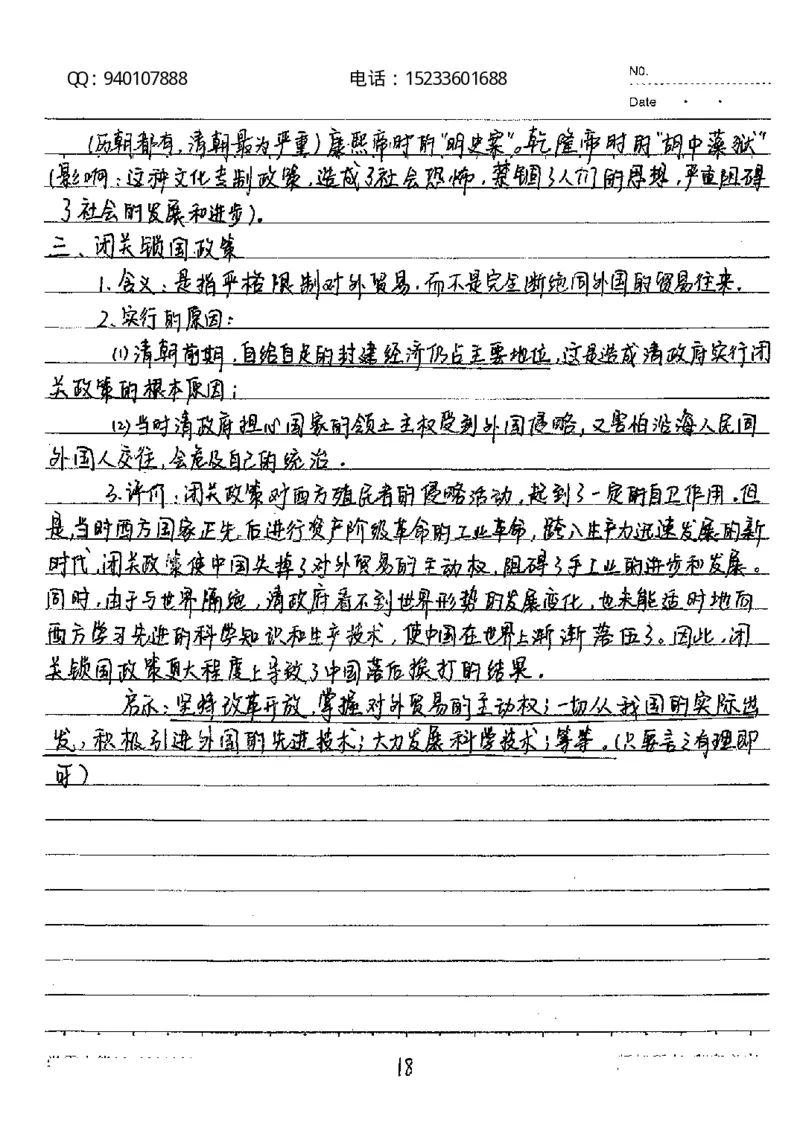 QQ：940107888 电话：15233601688 NO.
Date
(历朝都有，清朝最为严重)康熙帝时的“明史案”。乾隆帝时的“胡中藻狱”
(影响：这种文化专制政策，造成了社会恐怖，禁锢了人们的思想，严重阻碍
了社会的发展和进步)。
三、闭关锁国政策
1.含义：是指严格限制对外贸易，而不是完全断绝同外国的贸易往来。
2.实行的原因：
(1)清朝前期，自给自足的封建经济仍占主要地位，这是造成清政府实行闭
关政策的根本原因；
(2)当时清政府担心国家的领土主权受到外国侵略，又害怕沿海人民同
外国人交往，会危及自己的统治。
3.评价：闭关政策对西方殖民者的侵略活动，起到了一定的自卫作用。但
是，当时西方国家正先后进行资产阶级革命的工业革命，跨入生产力迅速发展的新
时代，闭关政策使中国失掉了对外贸易的主动权，阻碍了手工业的进步和发展。
同时，由于与世界隔绝，清政府看不到世界形势的发展变化，也未能适时地向
西方学习先进的科学知识和生产技术，使中国在世界上渐渐落伍了。因此，闭
关锁国政策更大程度上导致了中国落后挨打的结果。
启示：坚持改革开放，掌握对外贸易的主动权；一切从我国的实际出
发，积极引进外国的先进技术；大力发展科学技术；等等。(只要言之有理即
可)
18